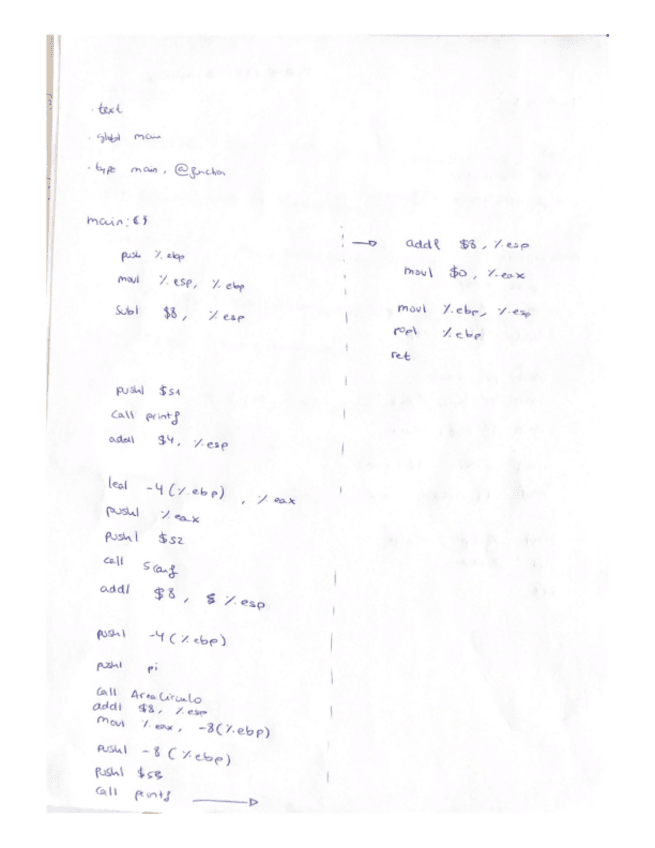 .text
.globl main
.type main, @function
main:
push %ebp
movl %esp, %ebp
subl $8, %esp
pushl $s1
call printf
addl $4, %esp
leal -4(%ebp), %eax
pushl %eax
pushl $s2
call scanf
addl $8, %esp
pushl -4(%ebp)
pushl pi
call AreaCirculo
addl $8, %esp
movl %eax, -8(%ebp)
pushl -8(%ebp)
pushl $s3
call printf
addl $8, %esp
movl $0, %eax
movl %ebp, %esp
popl %ebp
ret